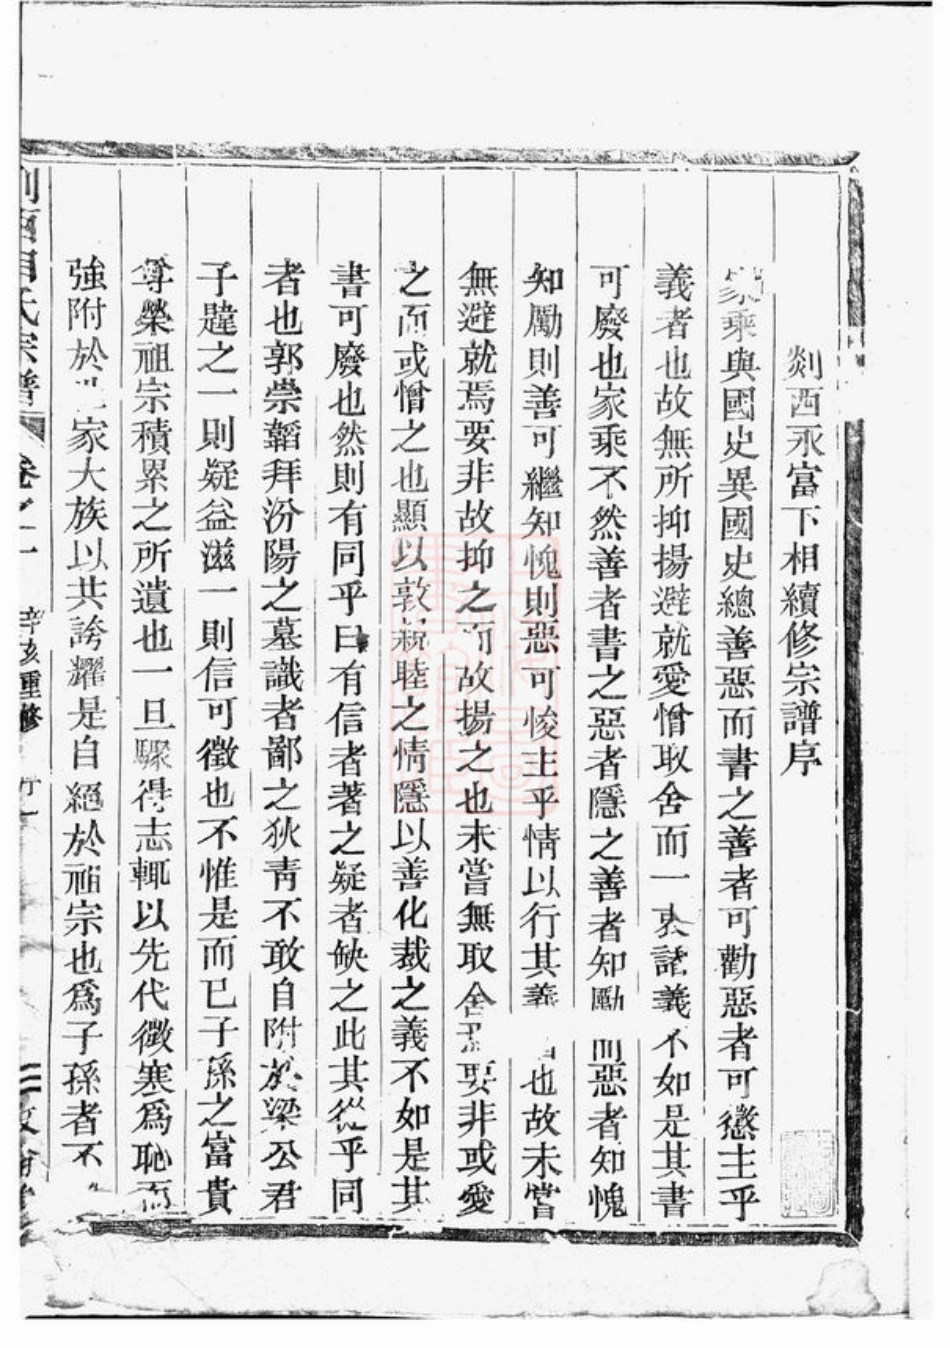 剡西永富下相續修宗譜序
家乘與國史異國史總善惡而書之善者可勸惡者可懲主乎
義者也故無所抑揚避就愛憎取舍而一裁諸義不如是其書
可廢也家乘不然善者書之惡者隱之善者知勵而惡者知愧
知勵則善可繼知愧則惡可悛主乎情以行其義也故未嘗
無避就焉要非故抑之而故揚之也未嘗無取舍焉要非或愛
之而或憎之也顯以敦親睦之情隱以善化裁之義不如是其
書可廢也然則有同乎曰有信者著之疑者缺之此其從乎同
者也郭崇韜拜汾陽之墓識者鄙之狄青不敢自附於梁公君
子韙之一則疑益滋一則信可徵也不惟是而已子孫之富貴
尊榮祖宗積累之所遺也一旦驟得志輒以先代微寒爲恥而
強附於家大族以共誇耀是自絕於祖宗也爲子孫者不
氏宗譜 卷之一 辛亥重修